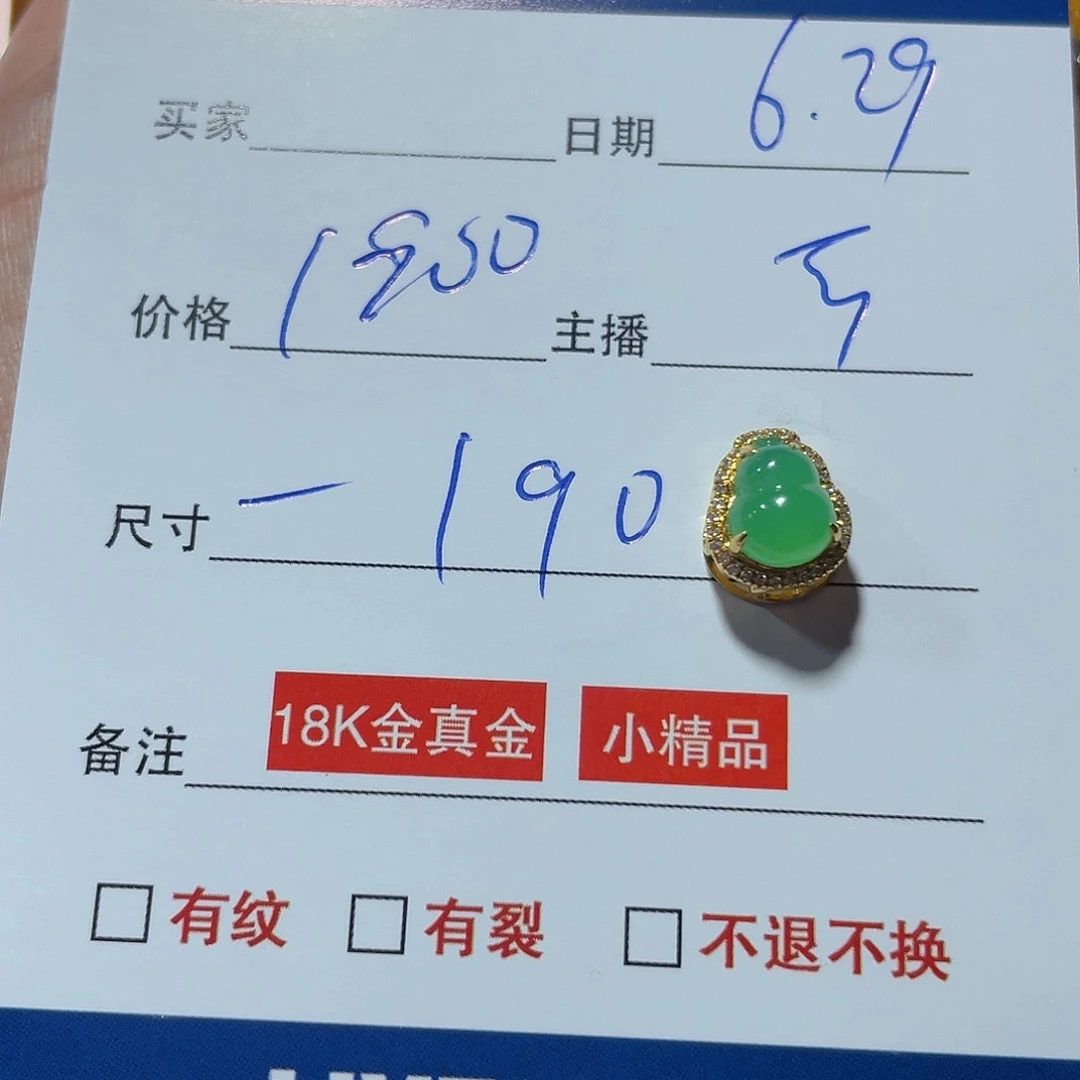 买家 日期 6.29
价格 1850 主播
尺寸 一 190
备注 18K金真金 小精品
□ 有纹 □ 有裂 □ 不退不换